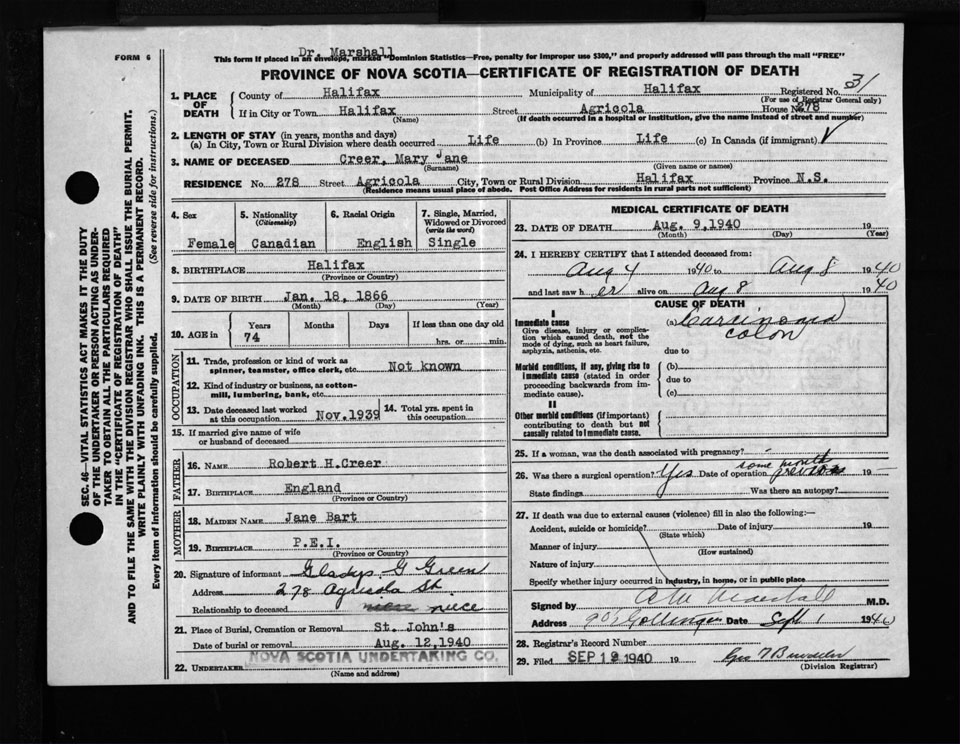 Dr. Marshall
FORM 6 This form if placed in an envelope, marked "Dominion Statistics—Free, penalty for improper use $300," and properly addressed will pass through the mail "FREE"
PROVINCE OF NOVA SCOTIA—CERTIFICATE OF REGISTRATION OF DEATH
1. PLACE OF DEATH County of Halifax Municipality of Halifax Registered No. 31
(For use of Registrar General only)
If in City or Town Halifax Street Agricola House No. 278
(Name) (If death occurred in a hospital or institution, give the name instead of street and number)
2. LENGTH OF STAY (in years, months and days)
(a) In City, Town or Rural Division where death occurred Life (b) In Province Life (c) In Canada (if immigrant)
3. NAME OF DECEASED Creer, Mary Jane
(Surname) (Given name or names)
RESIDENCE No. 278 Street Agricola City, Town or Rural Division Halifax Province N.S.
(Residence means usual place of abode. Post Office Address for residents in rural parts not sufficient)
4. Sex 5. Nationality (Citizenship) 6. Racial Origin 7. Single, Married, Widowed or Divorced (write the word)
Female Canadian English Single
8. BIRTHPLACE Halifax
(Province or Country)
9. DATE OF BIRTH Jan. 18, 1866
(Month) (Day) (Year)
10. AGE in Years Months Days If less than one day old
74 hrs. or min.
OCCUPATION
11. Trade, profession or kind of work as spinner, teamster, office clerk, etc. Not known
12. Kind of industry or business, as cotton-mill, lumbering, bank, etc.
13. Date deceased last worked at this occupation Nov.1939 14. Total yrs. spent in this occupation
15. If married give name of wife or husband of deceased
FATHER
16. NAME Robert H.Creer
17. BIRTHPLACE England
(Province or Country)
MOTHER
18. MAIDEN NAME Jane Bart
19. BIRTHPLACE P.E.I.
(Province or Country)
20. Signature of informant Gladys G Green
Address 278 Agricola St.
Relationship to deceased niece
21. Place of Burial, Cremation or Removal St. John's
Date of burial or removal Aug. 12,1940
22. UNDERTAKER NOVA SCOTIA UNDERTAKING CO.
(Name and address)
MEDICAL CERTIFICATE OF DEATH
23. DATE OF DEATH Aug. 9,1940 19
(Month) (Day) (Year)
24. I HEREBY CERTIFY that I attended deceased from:
Aug 4 1940 to Aug 8 1940
and last saw h er alive on Aug 8 1940
CAUSE OF DEATH
I
Immediate cause
Give disease, injury or complication which caused death, not the mode of dying, such as heart failure, asphyxia, asthenia, etc.
(a) Carcinoma
colon
due to
Morbid conditions, if any, giving rise to immediate cause (stated in order proceeding backwards from immediate cause).
(b)
due to
(c)
II
Other morbid conditions (if important) contributing to death but not causally related to immediate cause.
25. If a woman, was the death associated with pregnancy?
26. Was there a surgical operation? Yes Date of operation some months previous 19
State findings Was there an autopsy?
27. If death was due to external causes (violence) fill in also the following:—
Accident, suicide or homicide? Date of injury 19
(State which)
Manner of injury
(How sustained)
Nature of injury
Specify whether injury occurred in industry, in home, or in public place
Signed by M.D.
Address Gottingen Date Sept 1 1940
28. Registrar's Record Number
29. Filed SEP 12 1940 19
(Division Registrar)
SEC. 46—VITAL STATISTICS ACT MAKES IT THE DUTY
OF THE UNDERTAKER OR PERSON ACTING AS UNDER-
TAKER TO OBTAIN ALL THE PARTICULARS REQUIRED
IN THE "CERTIFICATE OF REGISTRATION OF DEATH"
AND TO FILE THE SAME WITH THE DIVISION REGISTRAR WHO SHALL ISSUE THE BURIAL PERMIT.
WRITE PLAINLY WITH UNFADING INK. THIS IS A PERMANENT RECORD.
Every item of information should be carefully supplied. (See reverse side for instructions.)